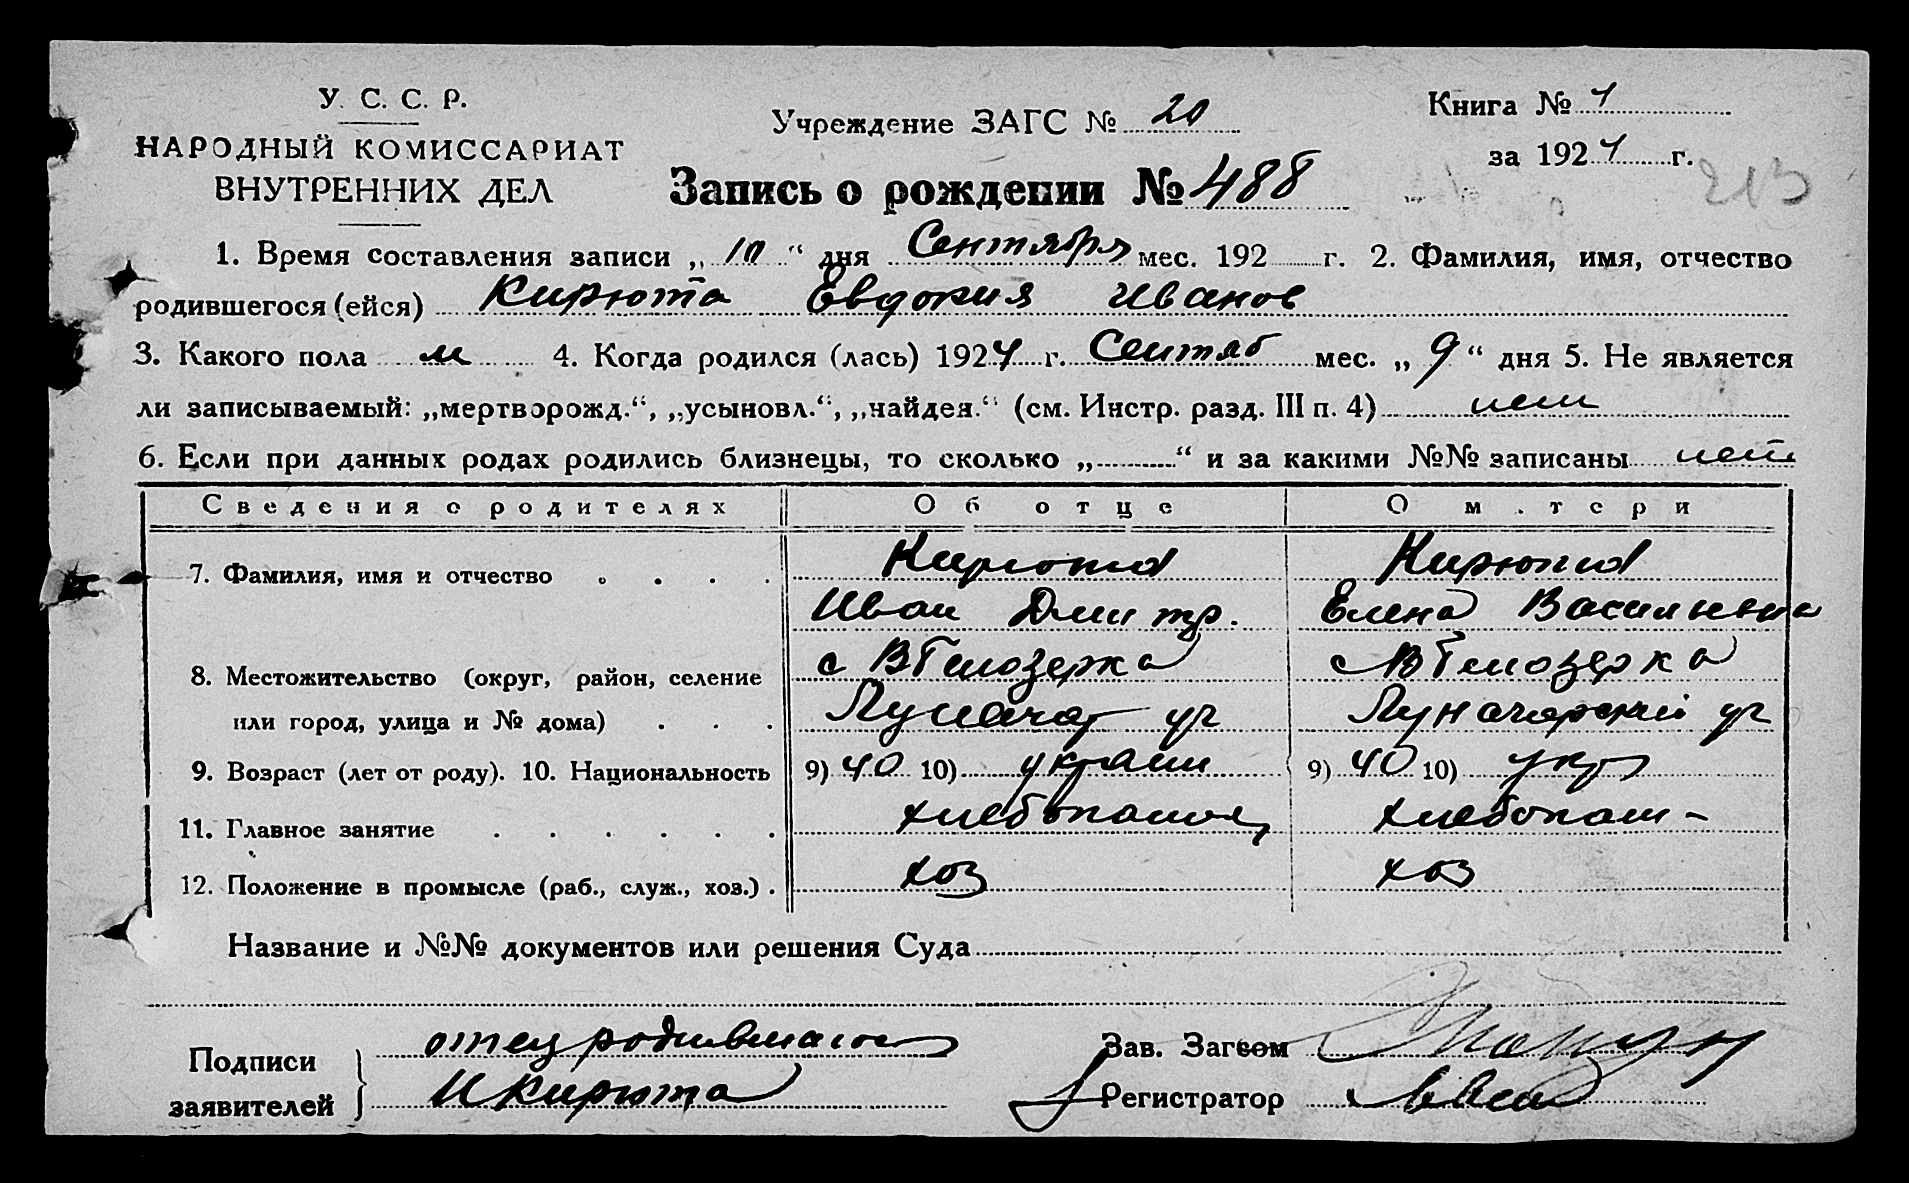 У. С. С. Р.
НАРОДНЫЙ КОМИССАРИАТ
ВНУТРЕННИХ ДЕЛ
Учреждение ЗАГС № 20
Книга № 1
за 1924 г.
213
Запись о рождении № 488
1. Время составления записи „10“ дня Сентября мес. 192 г. 2. Фамилия, имя, отчество
родившегося (ейся) Кирюта Евдокия Иванов
3. Какого пола м 4. Когда родился (лась) 1924 г. Сентяб мес. „9“ дня 5. Не является
ли записываемый: „мертворожд.“, „усыновл.“, „найден.“ (см. Инстр. разд. III п. 4) нет
6. Если при данных родах родились близнецы, то сколько „ “ и за какими №№ записаны нет
Сведения о родителях Об отце О м.тери
7. Фамилия, имя и отчество Кирюта Кирюта
Иван Дмитр. Елена Васильевна
8. Местожительство (округ, район, селение с Белозерка с Белозерка
или город, улица и № дома) Луначар ул Луначарский ул
9. Возраст (лет от роду). 10. Национальность 9) 40 10) украин 9) 40 10) укр
11. Главное занятие хлебопаш хлебопаш-
12. Положение в промысле (раб., служ., хоз.) хоз хоз
Название и №№ документов или решения Суда
Подписи
заявителей
отец родившагося
И Кирюта
Зав. Загсом
Регистратор